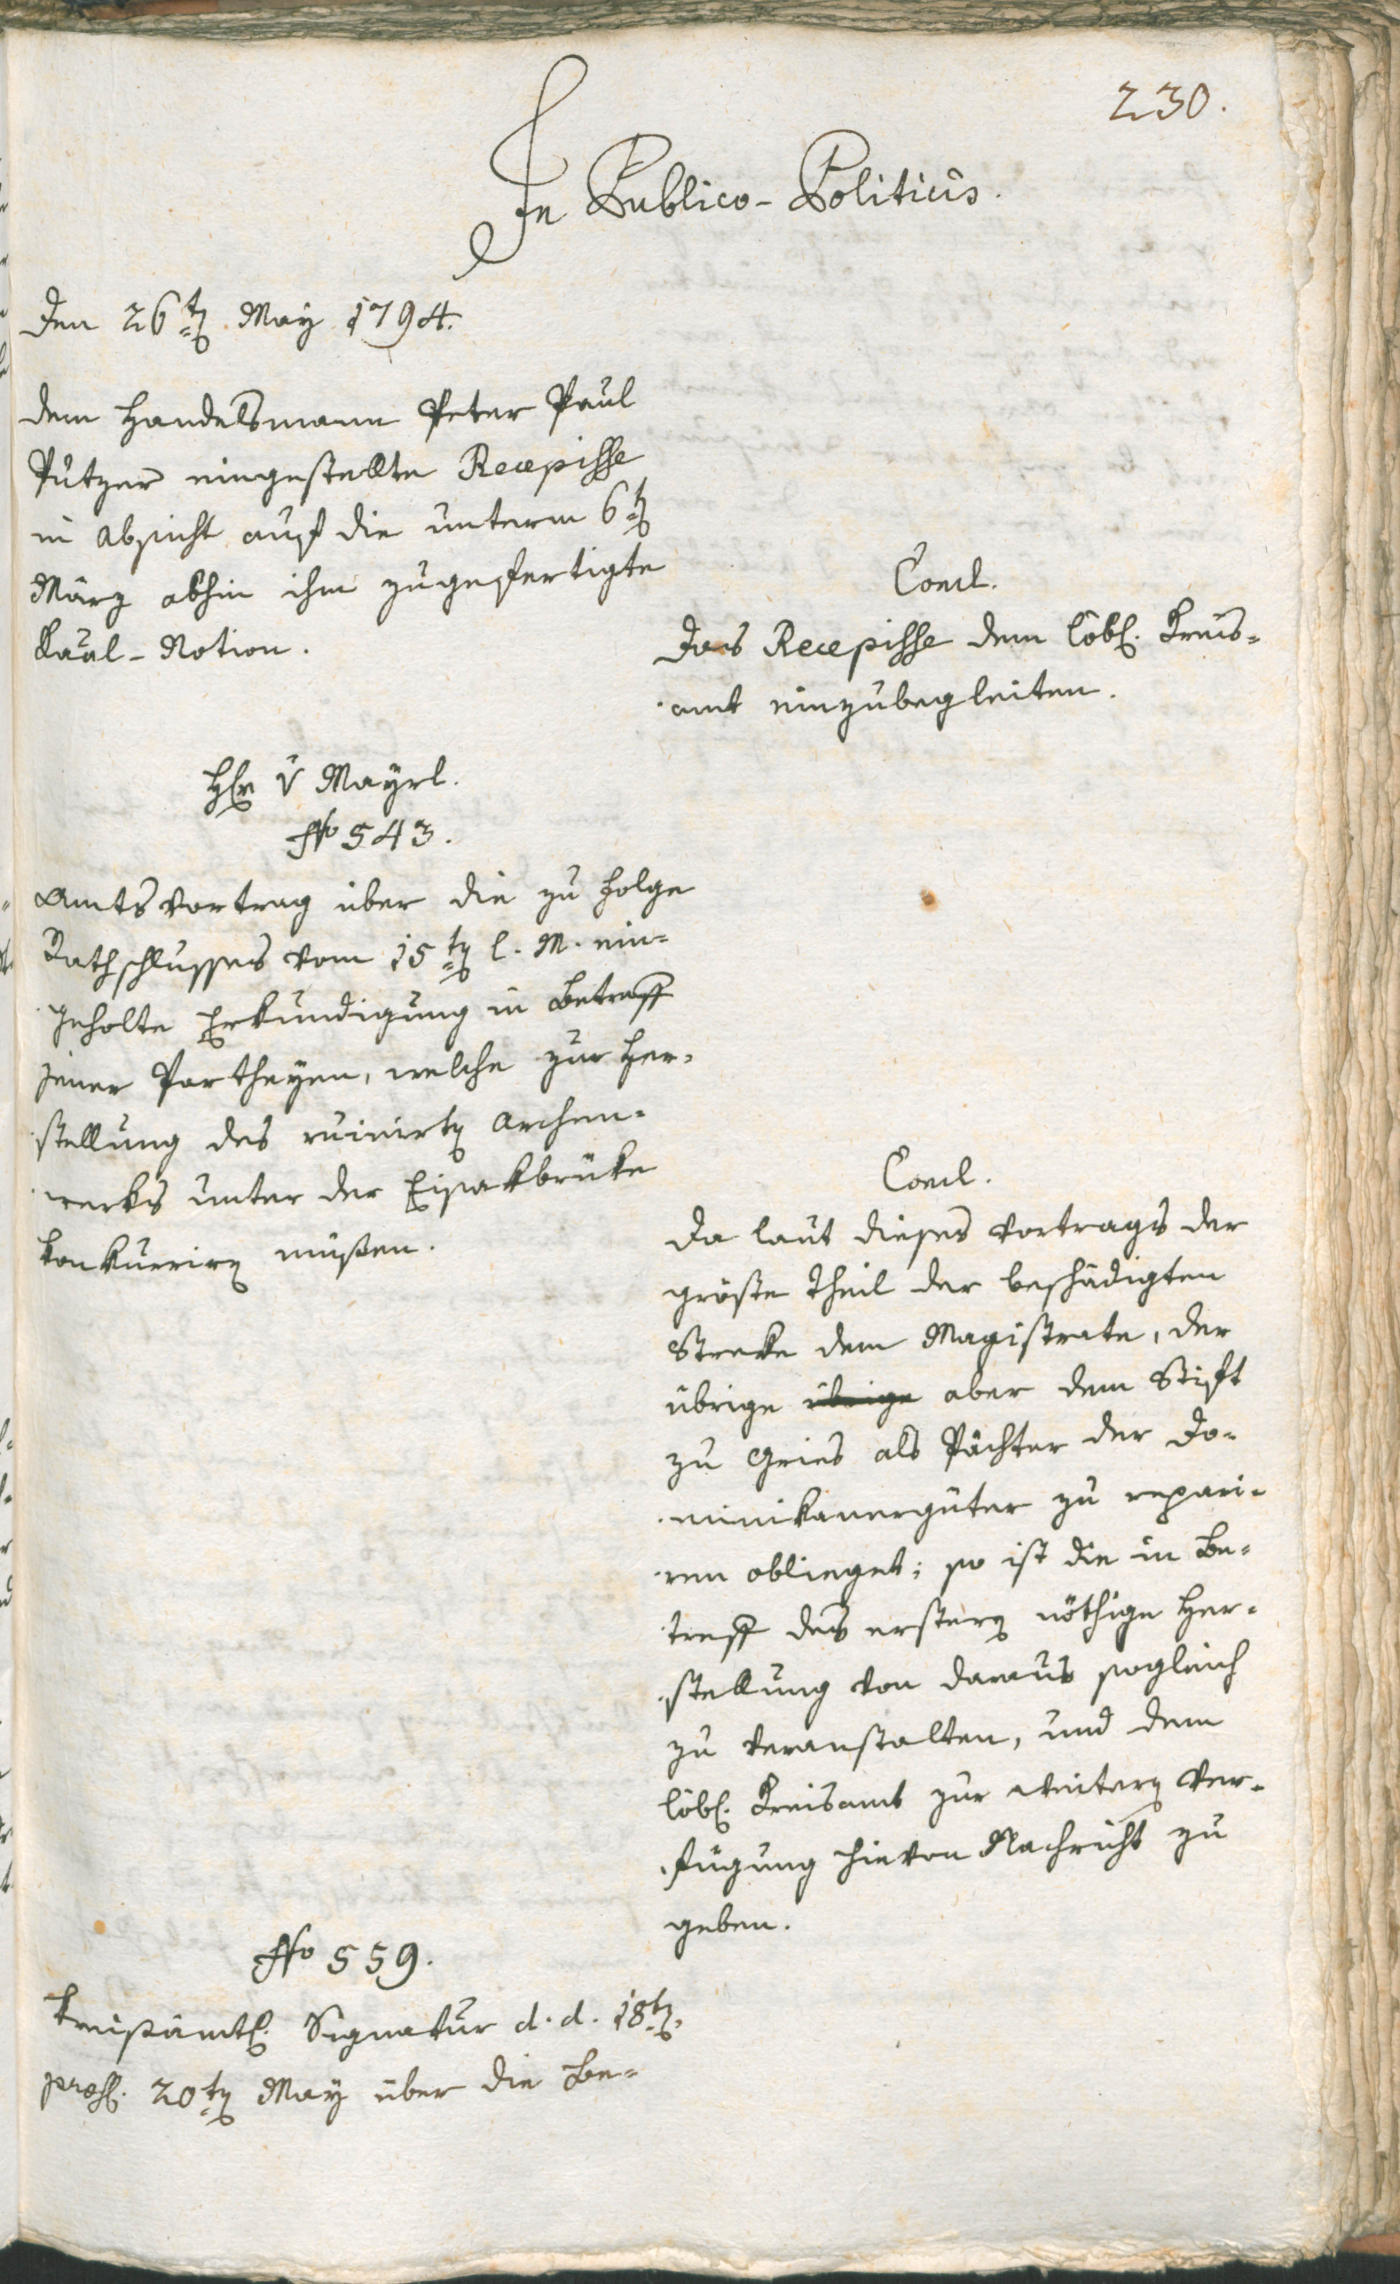 230.
In Publico-Politicis.
Den 26ten May 1794.
dem Handelsmann Peter Paul
Putzer eingestellte Recepisse
in Absicht auf die unterm 6ten
März abhin ihm zugefertigte
-Notion.
Concl.
Das Recepisse dem löbl. Kreis-
amt einzubegleiten.
Hr v Mayrl.
No 543.
Amtsvortrag über die zu Folge
Rathschlusses vom 15ten l. M. ein-
geholte Erkundigung in Betreff
jener Partheyen, welche zur Her-
stellung des ruinirten Archen-
werks unter der Eisakbrüke
konkurriren müßen.
Concl.
Da laut dieses Vortrags der
größte Theil der beschädigten
Streke dem Magistrate, der
übrige übrige aber dem Stift
zu Gries als Pächter der Do-
minikanergüter zu repari-
ren oblieget; so ist die in Be-
treff des erstern nöthige Her-
stellung von daraus sogleich
zu veranstalten, und dem
löbl. Kreisamt zur weitern Ver-
fügung hievon Nachricht zu
geben.
No 559.
Kreisämtl. Signatur d. d. 18ten,
præs. 20ten May über die Be-